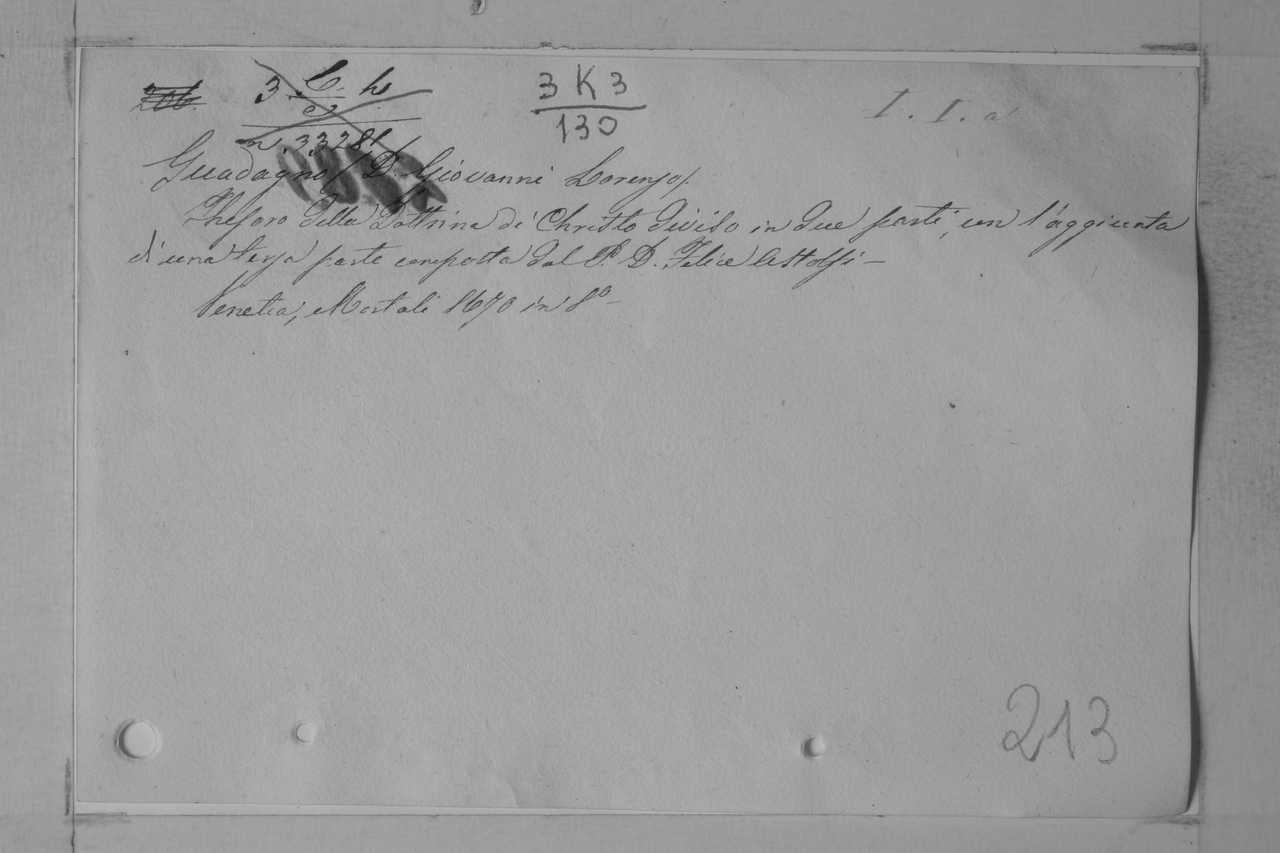 206 3 h 3 K 3 I. I. a
n. 33281 130
Guadagno / D. Giovanni Lorenzo /.
Thesoro della Dottrina di Christo diviso in due parti, con l'aggiunta
di una terza parte composta dal P. D. Felice Astolfi –
Venetia, 1670 in 8° –
213